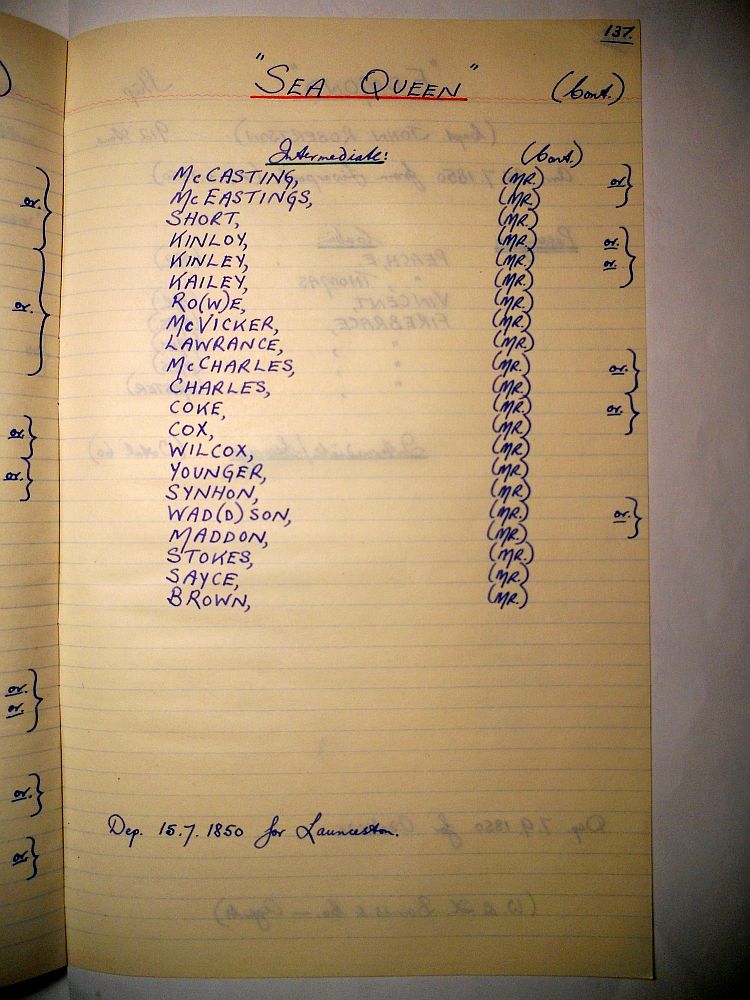 137.
"SEA QUEEN" (Cont.)
Intermediate: (Cont.)
McCASTING, (MR.) or }
McEASTINGS, (MR.)
SHORT, (MR.)
KINLOY, (MR.) or. }
KINLEY, (MR.) or.
KAILEY, (MR.)
RO(W)E, (MR.)
McVICKER, (MR.)
LAWRANCE, (MR.)
McCHARLES, (MR.) or. }
CHARLES, (MR.)
COKE, (MR.) or. }
COX, (MR.)
WILCOX, (MR.)
YOUNGER, (MR.)
SYNHON, (MR.)
WAD(D)SON, (MR.) or. }
MADDON, (MR.)
STOKES, (MR.)
SAYCE, (MR.)
BROWN, (MR.)
Dep. 15.7.1850 for Launceston.
or. }
or. }
or. }
or. }
or. }
or.
or. }
or. }